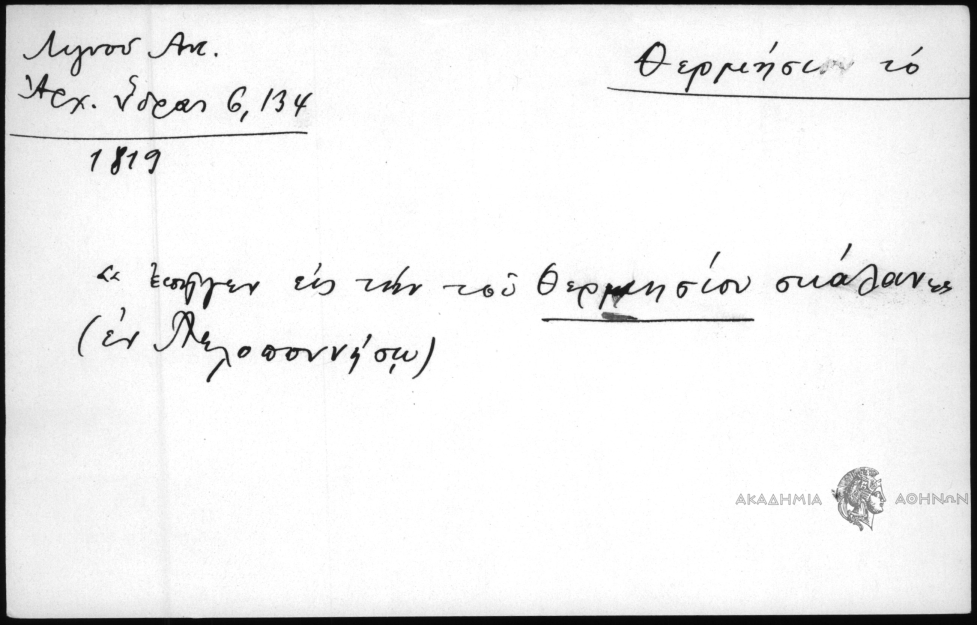 Λιγνού Αντ.
Ἀρχ. Ὕδρας 6, 134
1819
Θερμήσιον τό
“ ἐπῆγεν εἰς τὴν τοῦ Θερμησίου σκάλαν ”
(ἐν Πελοποννήσῳ)
ΑΚΑΔΗΜΙΑ ΑΘΗΝΩΝ